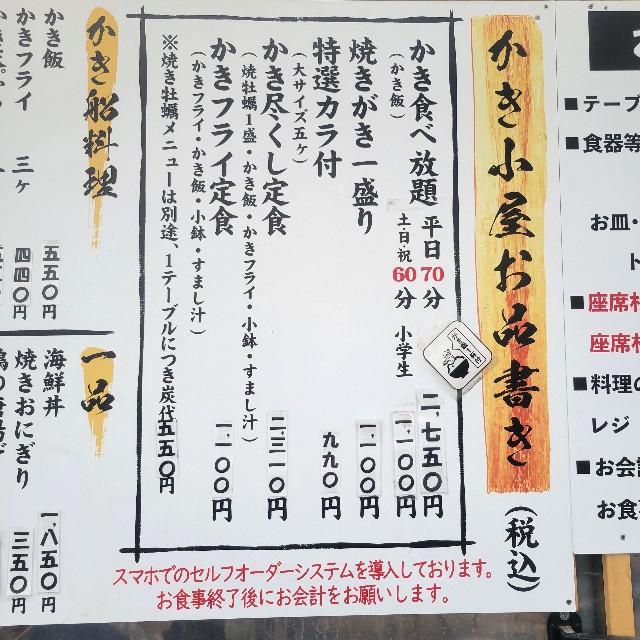 かき小屋お品書き(税込)
かき食べ放題 平日70分 二、七五〇円
(かき飯) 土日・祝60分 小学生 一、一〇〇円
焼きがき一盛り 一、一〇〇円
特選カラ付 九九〇円
(大サイズ五ヶ)
かき尽くし定食 二、三一〇円
(焼牡蠣1盛・かき飯・かきフライ・小鉢・すまし汁)
かきフライ定食 一、一〇〇円
(かきフライ・かき飯・小鉢・すまし汁)
※焼き牡蠣メニューは別途、1テーブルにつき炭代五五〇円
スマホでのセルフオーダーシステムを導入しております。
お食事終了後にお会計をお願いします。
かき船料理
かき飯 五五〇円
かきフライ 三ヶ 四四〇円
一品
海鮮丼 一、八五〇円
焼きおにぎり 三五〇円
■テーブ
■食器等
お皿・
■座席
座席
■料理の
レジ
■お会
お食事